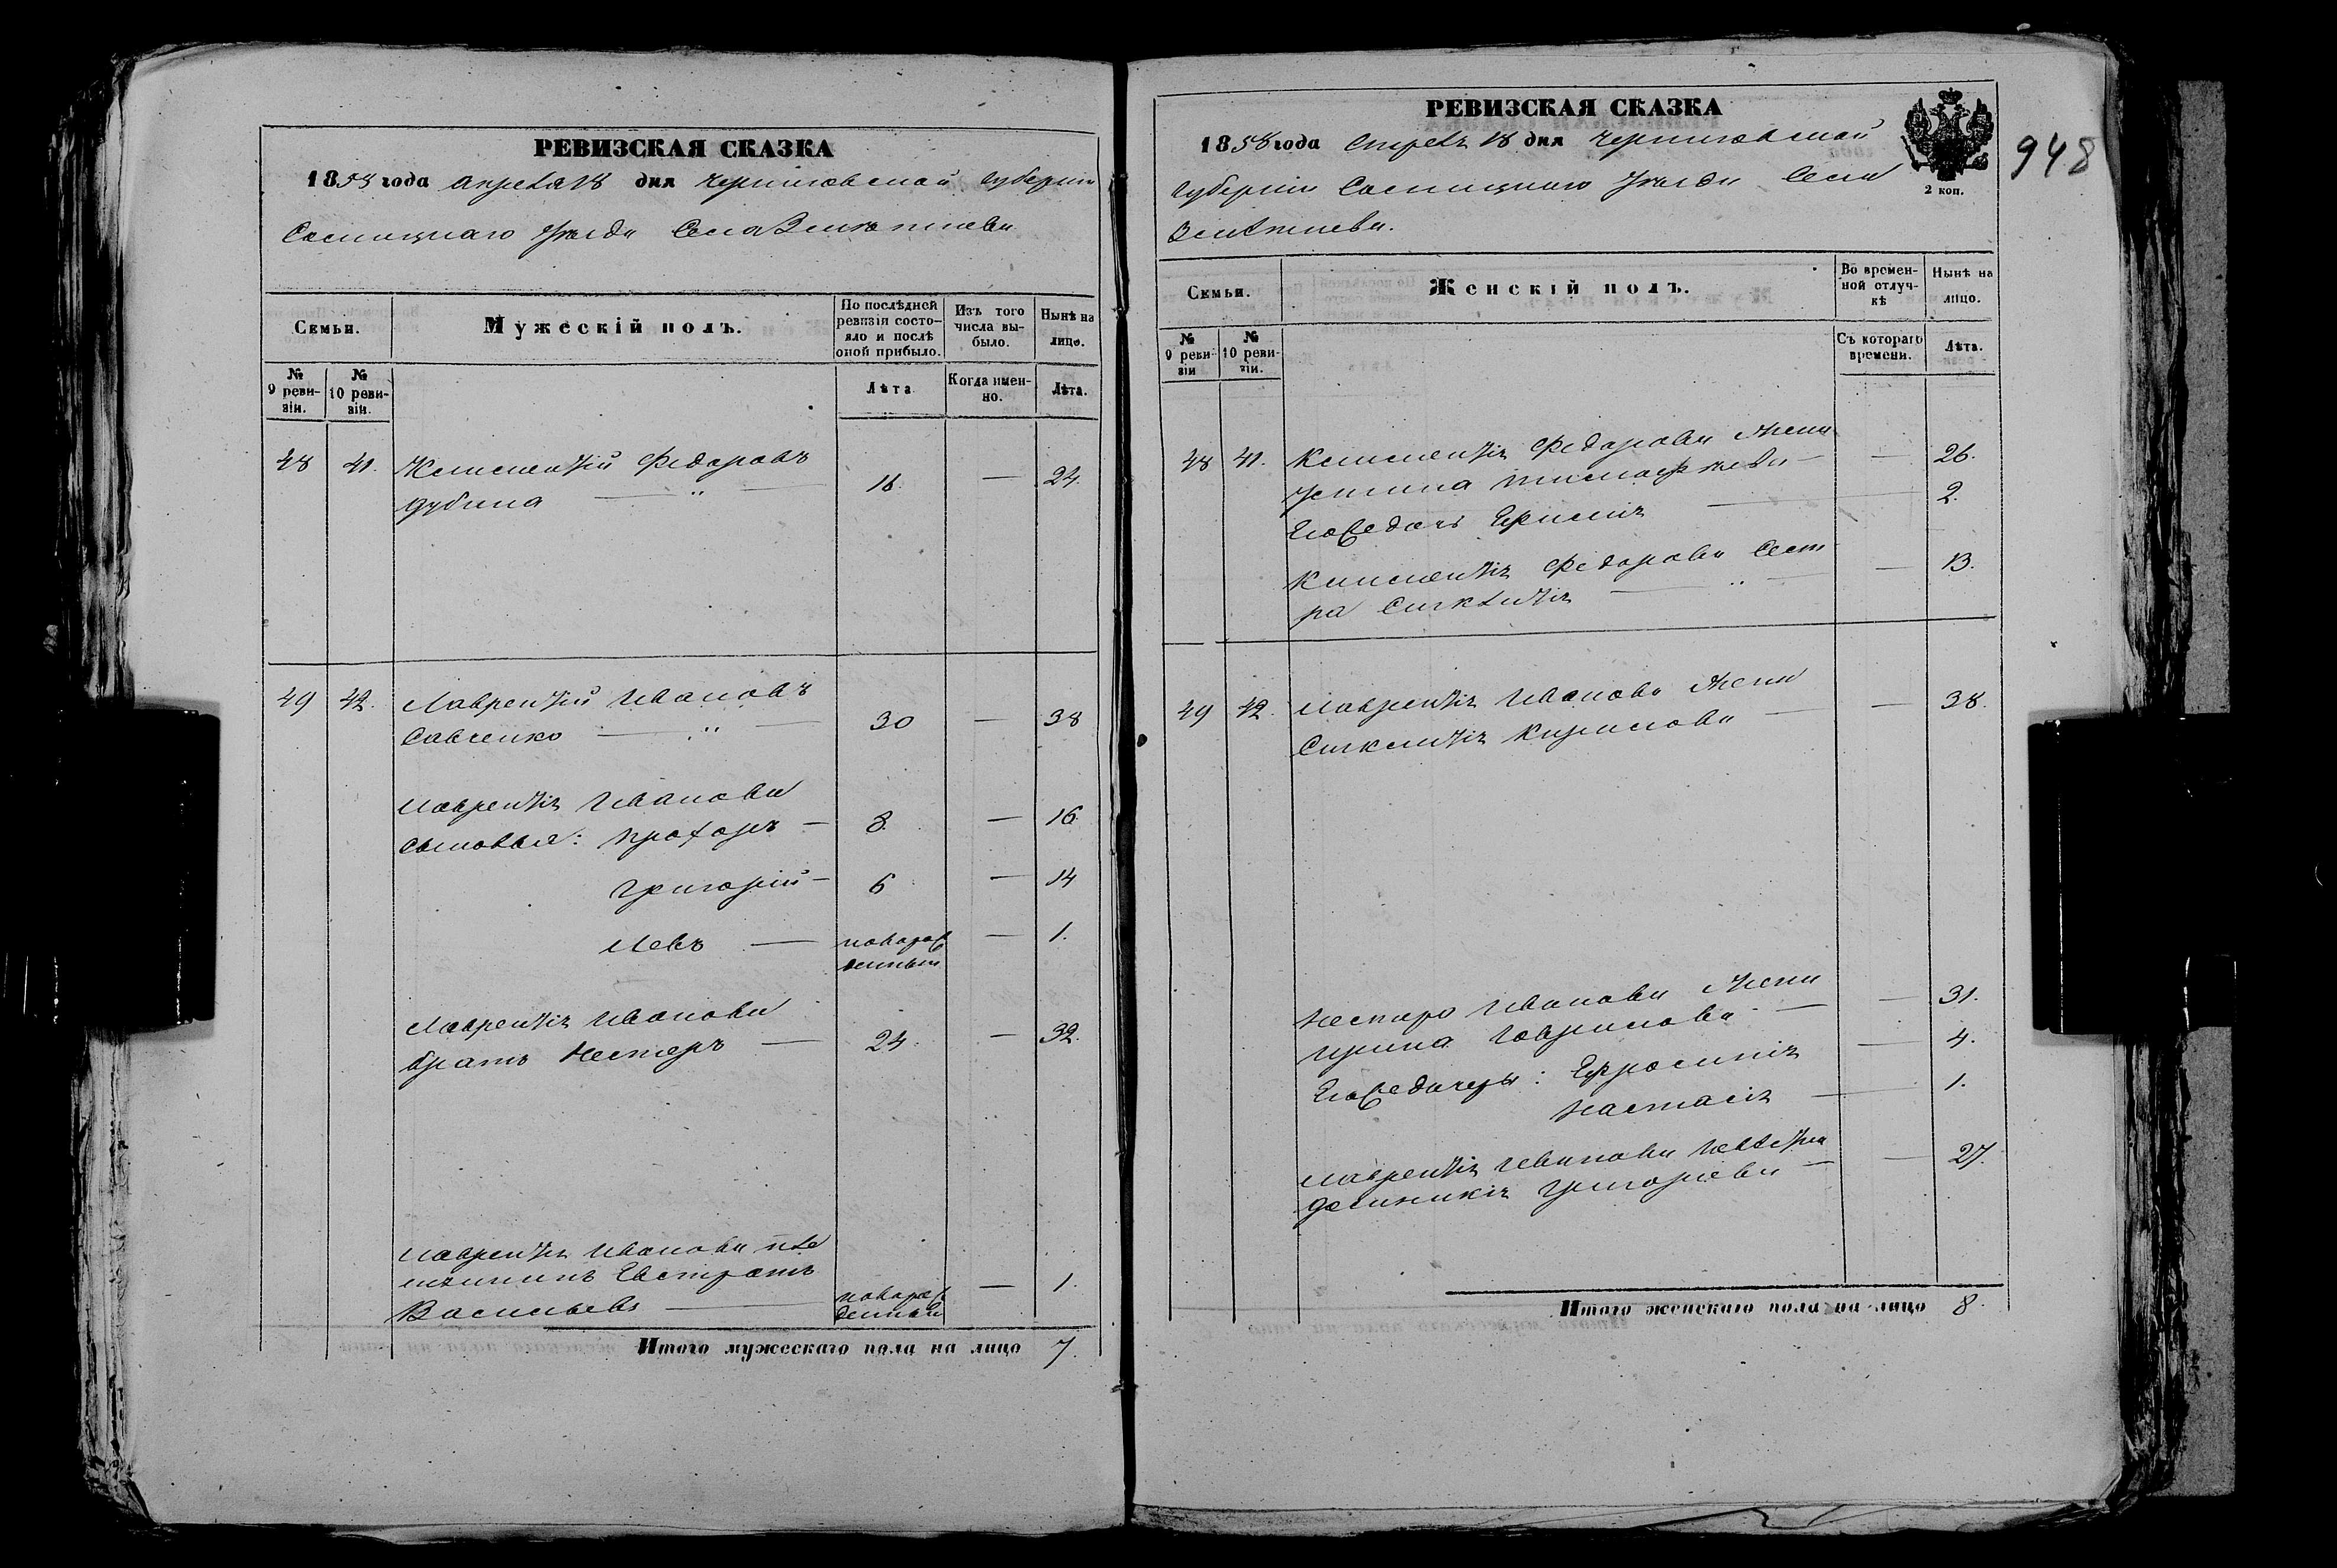 РЕВИЗСКАЯ СКАЗКА
1858 года Апреля 18 дня Черниговской Губерніи
Сосницкаго Уѣзда Села
Семьи.
Мужескій полъ.
По послѣдней ревизіи состояло и послѣ оной прибыло.
Изъ того числа выбыло.
Нынѣ на лицо.
№ 9 ревизіи.
№ 10 ревизіи.
Лѣта
Когда именно.
Лѣта.
48 41. Климентій Федоровъ
Дубина 16. — 24.
49 42. Лаврентій Ивановъ
Савченко 30 — 38
Лаврентія Иванова
сыновья: Прохоръ — 8. — 16.
Григорій — 6 — 14
Левъ — новорож — 1.
денный
Лаврентія Иванова
братъ Нестеръ — 24. — 32.
Лаврентія Иванова пле
мянникъ Евстратъ
Васильевъ — новорож — 1.
денный
Итого мужескаго пола на лицо 7.
РЕВИЗСКАЯ СКАЗКА
1858 года Апреля 18 дня Черниговской
Губерніи Сосницкаго Уѣзда Села
2 коп.
948
Семьи.
Женскій полъ.
Во временной отлучкѣ
Нынѣ на лицо.
№ 9 ревизіи
№ 10 ревизіи.
Съ котораго времени.
Лѣта.
48 41. Климентія Федорова жена
Устина — 26.
Его дочь 2.
Климентія Федорова сест
ра Синклитія — 13.
49 42. Лаврентія Иванова жена
Синклитія Кирилова — 38.
Нестера Иванова жена
Ирина Гаврилова — 31.
Его дочеры: Ефросинія — 4.
Настасія — 1.
Лаврентія Иванова невѣстка
Григорьева — 27.
Итого женскаго пола на лицо 8.